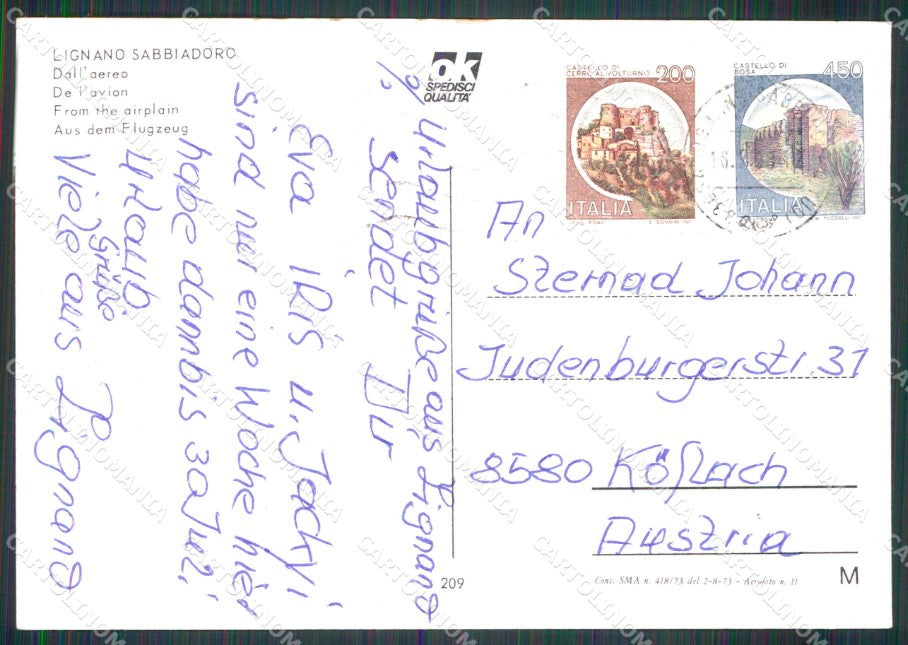 LIGNANO SABBIADORO
Dall'aereo
De l'avion
From the airplain
Aus dem Flugzeug
OK
SPEDISCI
QUALITÀ
CASTELLO DI
CERRO AL VOLTURNO
200
ITALIA
CASTELLO DI
BOSA
450
ITALIA
Urlaubgrüße aus Lignano
sendet Dir
Eva IRIS u. Jochi
sind nur eine Woche hier
habe dann bis 30 Juli
Urlaub
Viele Grüße aus Lignano
An
Sternad Johann
Judenburgerstr. 31
8580 Köflach
Austria
209
Conc. SMA n. 418/73 del 2-8-73 - Aerofoto n. 11
M
CARTOLINOMANIA